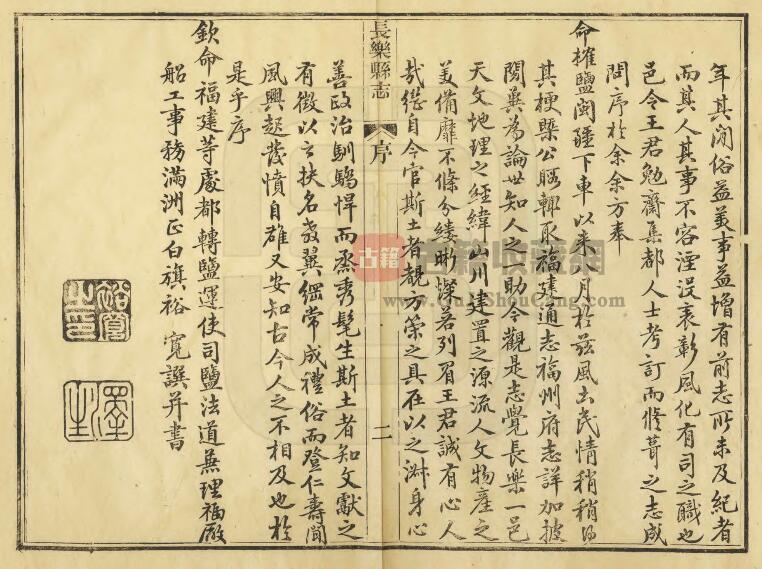 年其間俗益美事益增有前志所未及紀者
而其人其事不容湮沒表彰風化有司之職也
邑令王君勉齋集都人士考訂而修葺之志成
問序於余余方奉
命榷鹽閩疆下車以來八月於茲風土民情稍稍得
其梗槩公暇輒取福建通志福州府志詳加披
閱冀為論世知人之助今觀是志覺長樂一邑
天文地理之經緯山川建置之源流人文物產之
美備靡不條分縷晰燦若列眉王君誠有心人
哉繼自今官斯土者覩方策之具在以之淑身心
長樂縣志
序
二
善政治馴驕悍而烝秀髦生斯土者知文獻之
有徵以之扶名教翼綱常成禮俗而登仁壽聞
風興起發憤自雄又安知古今人之不相及也於
是乎序
欽命福建等處都轉鹽運使司鹽法道兼理福廠
船工事務滿洲正白旗裕寬譔并書
裕寬之印
澤生
古籍
古籍收藏網
www.GuJiShouCang.com